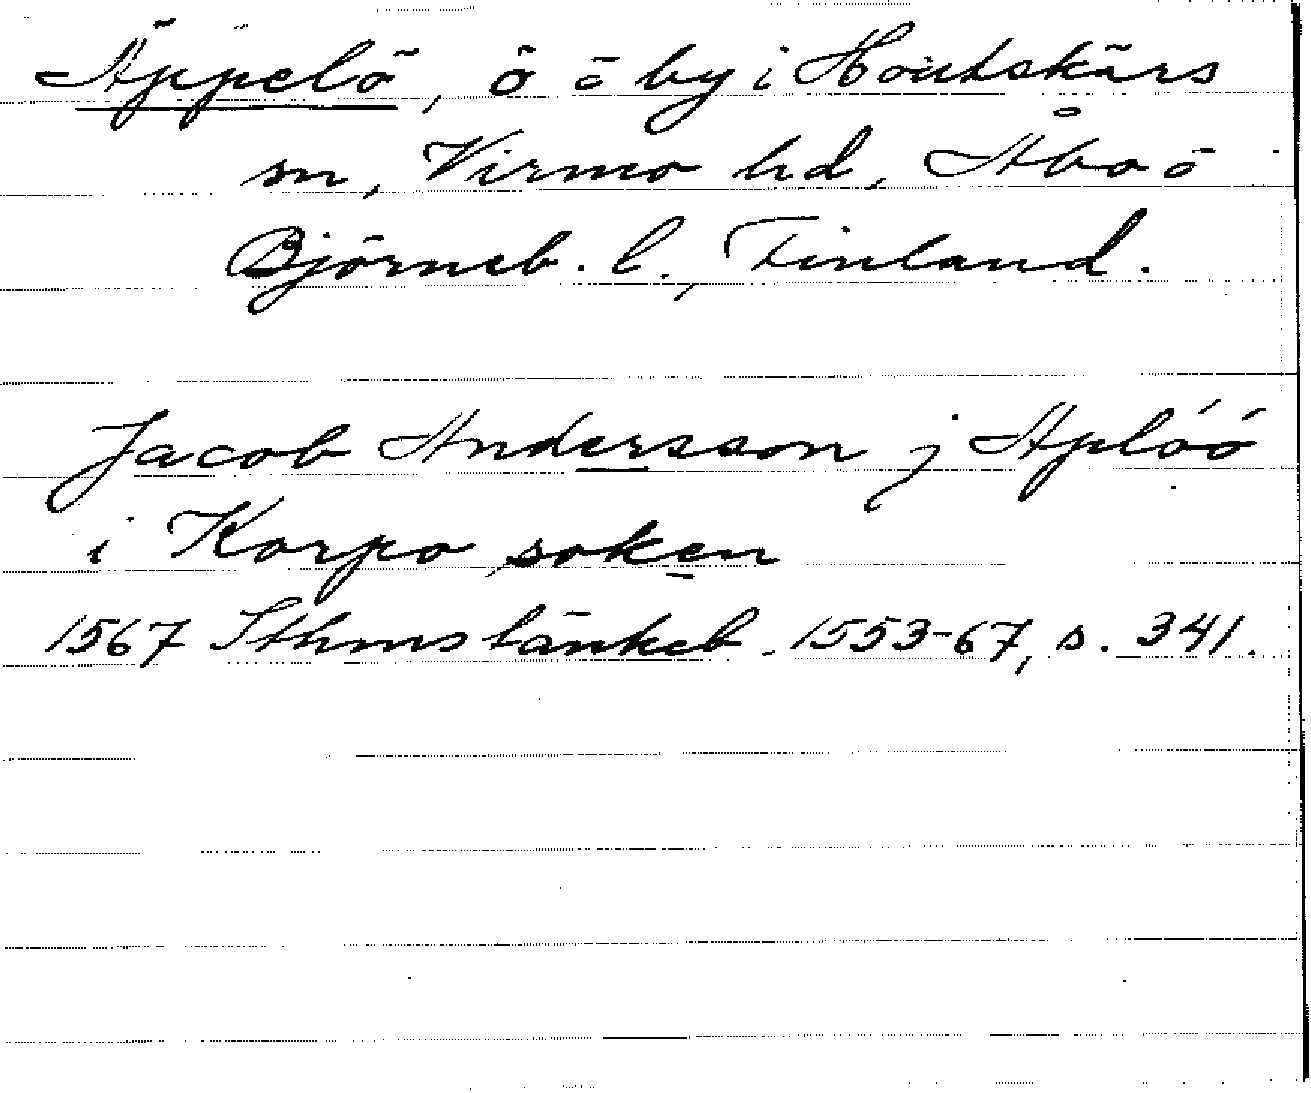 Äppelö, ö o by i Houtskärs
sn, Virmo hd, Åbo o
Björneb. l., Finland.
Jacob Andersson j Aplóó
i Korpo soken
1567 Sthms tänkeb. 1553-67, s. 341.